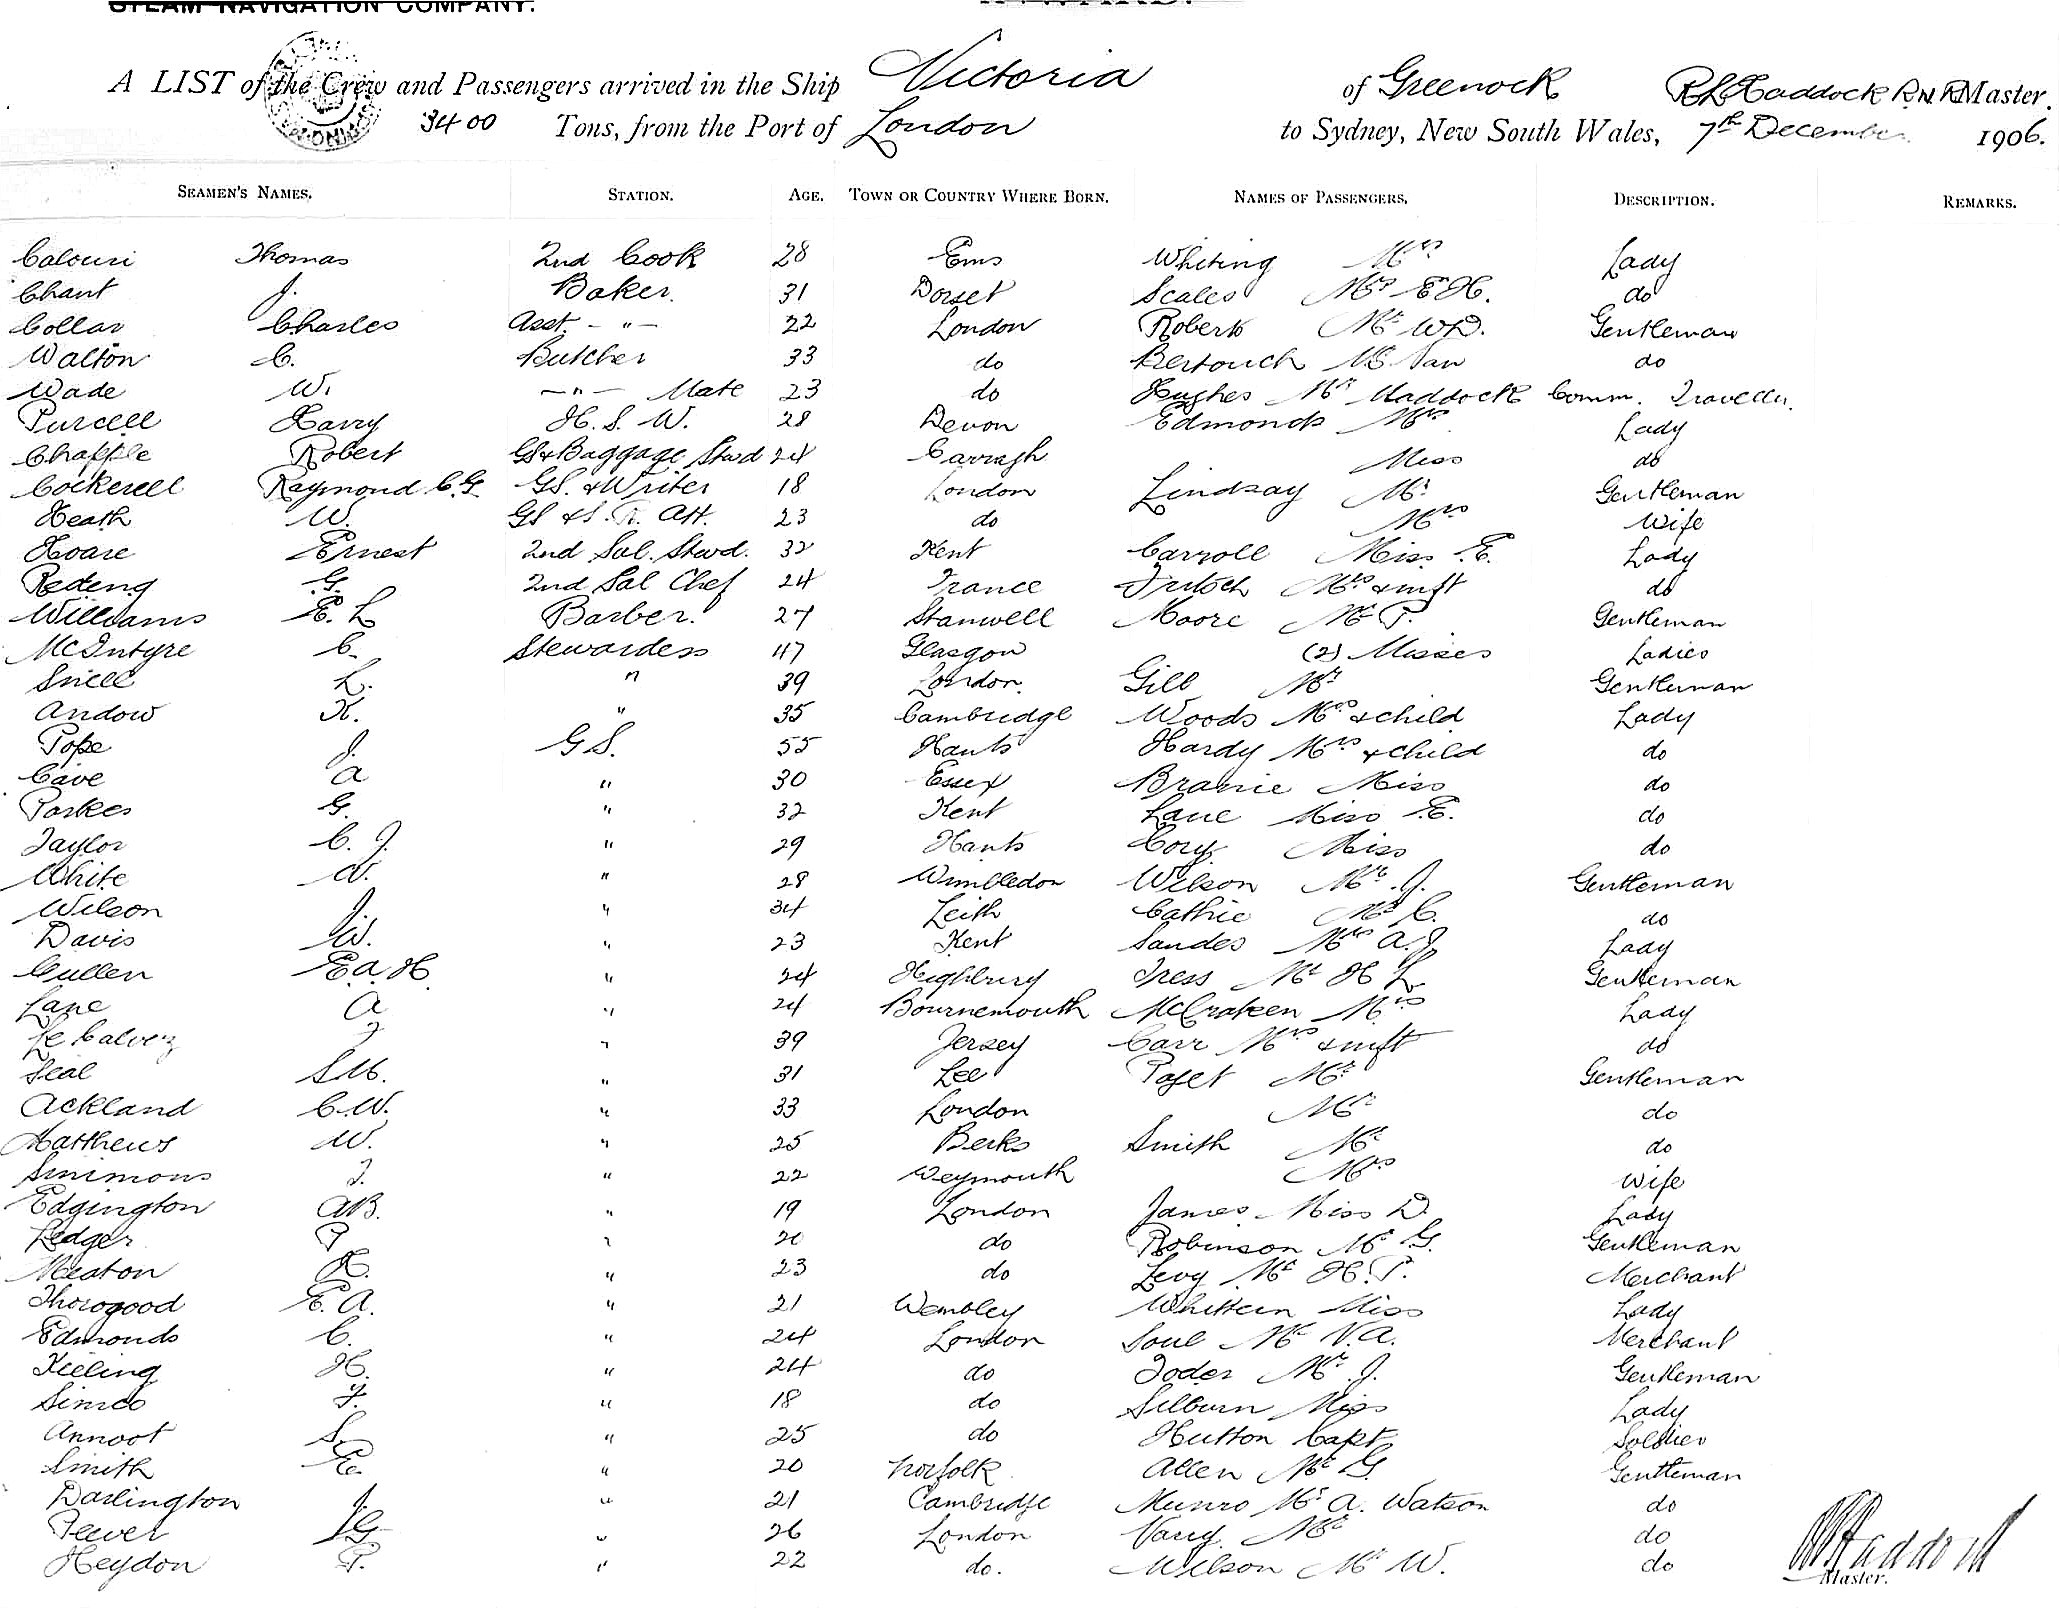 STEAM NAVIGATION COMPANY.
A LIST of the Crew and Passengers arrived in the Ship Victoria of Greenock R L Haddock R.N.R Master.
3400 Tons, from the Port of London to Sydney, New South Wales, 7th December 1906.
SEAMEN'S NAMES. STATION. AGE. TOWN OR COUNTRY WHERE BORN. NAMES OF PASSENGERS. DESCRIPTION. REMARKS.
Calouri Thomas 2nd Cook 28 Ems Whiting Mrs Lady
Chant J. Baker. 31 Dorset Scales Mrs E H. do
Collar Charles Asst. - " - 22 London Roberts Mr W D. Gentleman
Walton C. Butcher 33 do Bertouch Van do
Wade W. - " - Mate 23 do Hughes Mr Maddock Comm. Traveller.
Purcell Harry H. S. W. 28 Devon Edmonds Mrs Lady
Chapple Robert GS & Baggage Stwd 24 Carragh Miss do
Cockerell Raymond C.G GS. & Writer 18 London Lindsay Mr. Gentleman
Heath W. GS & S. R. Att. 23 do Mrs Wife
Hoare Ernest 2nd Sal. Stwd. 32 Kent Carroll Miss E. Lady
Redeng G. 2nd Sal Chef 24 France Fritsch Mrs & inft do
Williams E. L Barber. 27 Stanwell Moore Mr P. Gentleman
McIntyre C. Stewardess 47 Glasgow (2) Misses Ladies
Snell L. " 39 London. Gill Mr Gentleman
Andow K. " 35 Cambridge Woods Mrs & child Lady
Pope J. G S. 55 Hants Hardy Mrs & child do
Cave A " 30 Essex Branie Miss do
Parkes G. " 32 Kent Lane Miss E. do
Taylor C. J. " 29 Hants Cory Miss do
White W. " 28 Wimbledon Wilson Mr J. Gentleman
Wilson J. " 34 Leith Cathie Mr C. do
Davis W. " 23 Kent Sandes Mrs A. J Lady
Cullen E. A. H. " 24 Highbury Tress Mr H L Gentleman
Lane A " 24 Bournemouth McCraken Mrs Lady
Le Calvez J " 39 Jersey Carr Mrs & inft do
Seal S M. " 31 Lee Paget Mr Gentleman
Ackland C. W. " 33 London Mr do
Matthews W. " 25 Berks Smith Mr do
Simmons J. " 22 Weymouth Mrs Wife
Edgington A B. " 19 London James Miss D. Lady
Ledger P " 20 do Robinson Mr G. Gentleman
Meaton H. " 23 do Levy Mr H. P. Merchant
Thorogood E. A. " 21 Wembley Whittern Miss Lady
Edmonds C. " 24 London Soul Mr N. A. Merchant
Keeling H. " 24 do Toder Mr J. Gentleman
Simco F. " 18 do Silburn Miss Lady
Annoot S. " 25 do Hutton Capt Soldier
Smith E. " 20 Norfolk Allen Mr G. Gentleman
Darlington J. " 21 Cambridge Munro Mr A. Watson do
Fewer J G " 26 London Varry Mr do
Heydon P. " 22 do. Wilson Mr W. do
Haddock
Master.